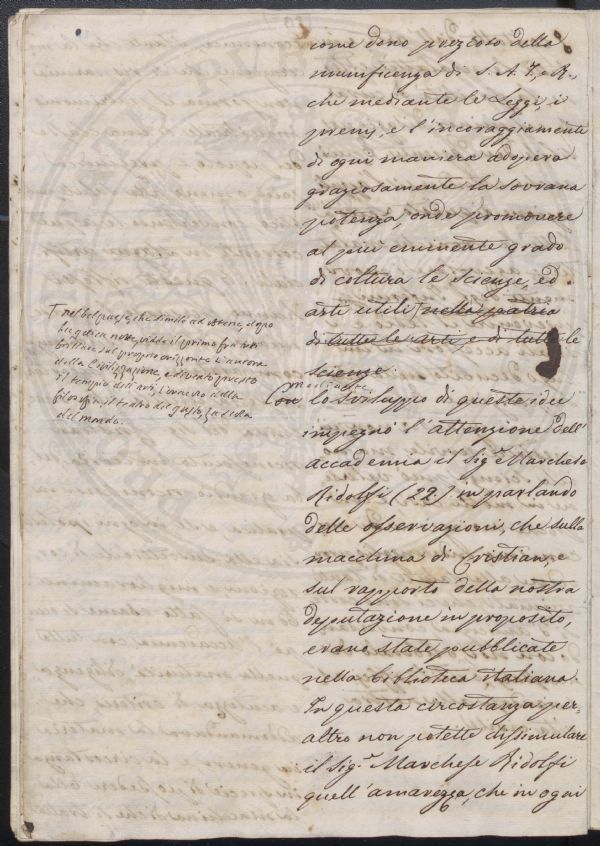 come dono prezioso della
munificenza di S. A. I. e R.,
che mediante le Leggi, i
premj, e l'incoraggiamento
di ogni maniera adopera
graziosamente la sovrana
potenza, onde promovere
al più eminente grado
di coltura le scienze, ed
arti utili nella patria
di tutte le arti, e di tutte le
scienze.
Con mediante
lo sviluppo di queste idee
impegnò l'attenzione dell'
accademia il Sig.e Marchese
Ridolfi (22) in parlando
delle osservazioni, che sulla
macchina di Cristian, e
sul rapporto della nostra
deputazione in proposito,
erano state pubblicate
nella biblioteca italiana.
In questa circostanza per-
altro non potette dissimulare
il Sig.e Marchese Ridolfi
quell'amarezza, che in ogni
nel bel paese, che simile ad Atene, dopo
la gotica notte, vidde il primo fra noi
brillare sul proprio orizzonte l'aurora
della Civilizzazione, e diventò presto
il tempio dell'arti, della
filosofia, il teatro del gusto, la
del mondo.